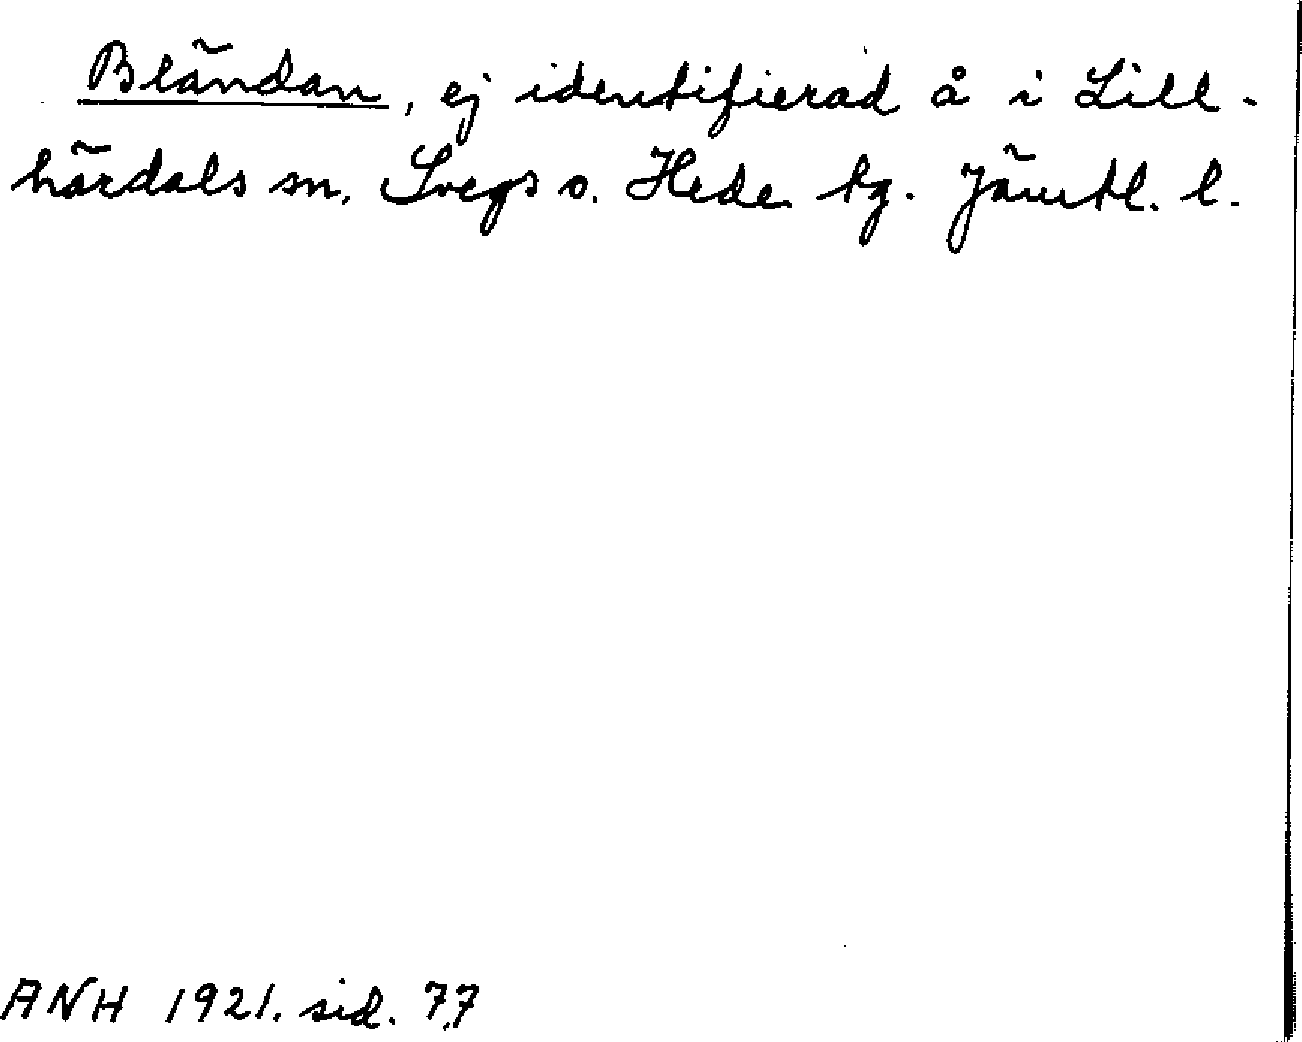 Bländan, ej identifierad å i Lill-
härdals sn. Svegs o. Hede tg. Jämtl. l.
ANH 1921. sid. 77